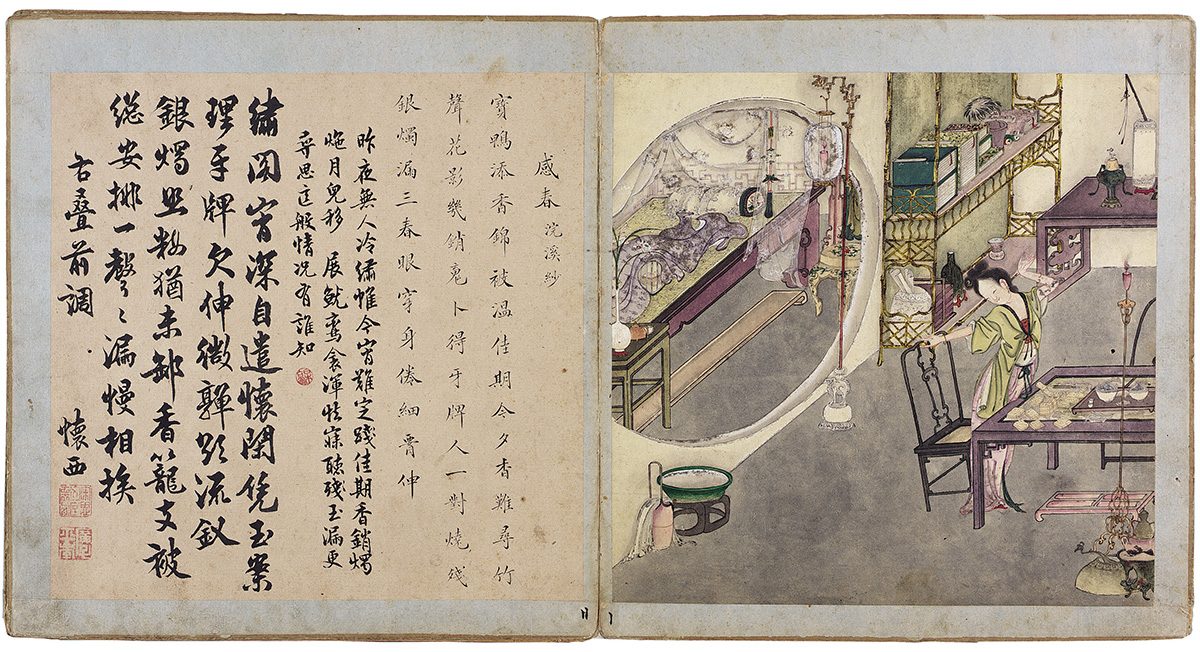 感春 浣溪紗
寶鴨添香錦被溫佳期今夕香難尋竹
聲花影幾銷魂卜得牙牌人一對燒殘
銀燭漏三春眼穿身倦細伸
昨夜無人冷繡帷今宵難定踐佳期香銷燭
灺月兒移 展鴛衾渾怯寐聽殘玉漏更
尋思這般情況有誰知
繡閣宵深自遣懷閑凭玉案
理牙牌欠伸微嚲流釵
銀燭照妝猶未卸香籠支被
總安排一聲〻漏慢相挨
右叠前調
懷西